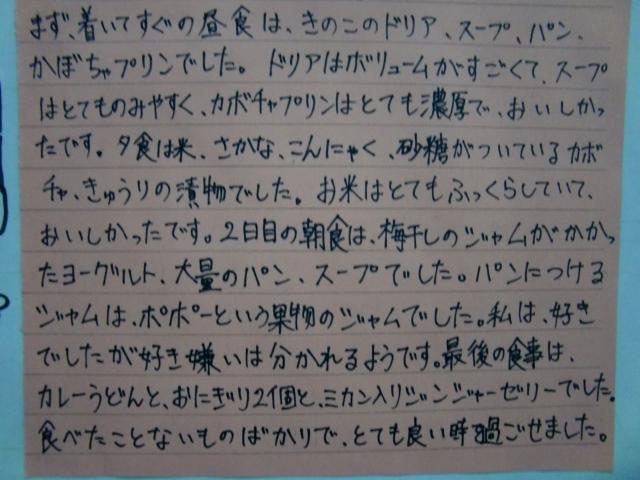 まず、着いてすぐの昼食は、きのこのドリア、スープ、パン、
かぼちゃプリンでした。ドリアはボリュームがすごくて、スープ
はとてものみやすく、カボチャプリンはとても濃厚で、おいしかっ
たです。夕食は米、さかな、こんにゃく、砂糖がついているカボ
チャ、きゅうりの漬物でした。お米はとてもふっくらしていて、
おいしかったです。2日目の朝食は、梅干しのジャムがかかっ
たヨーグルト、大量のパン、スープでした。パンにつける
ジャムは、ポポーという果物のジャムでした。私は、好き
でしたが好き嫌いは分かれるようです。最後の食事は、
カレーうどんと、おにぎり2個と、ミカン入りジンジャーゼリーでした。
食べたことないものばかりで、とても良い時を過ごせました。